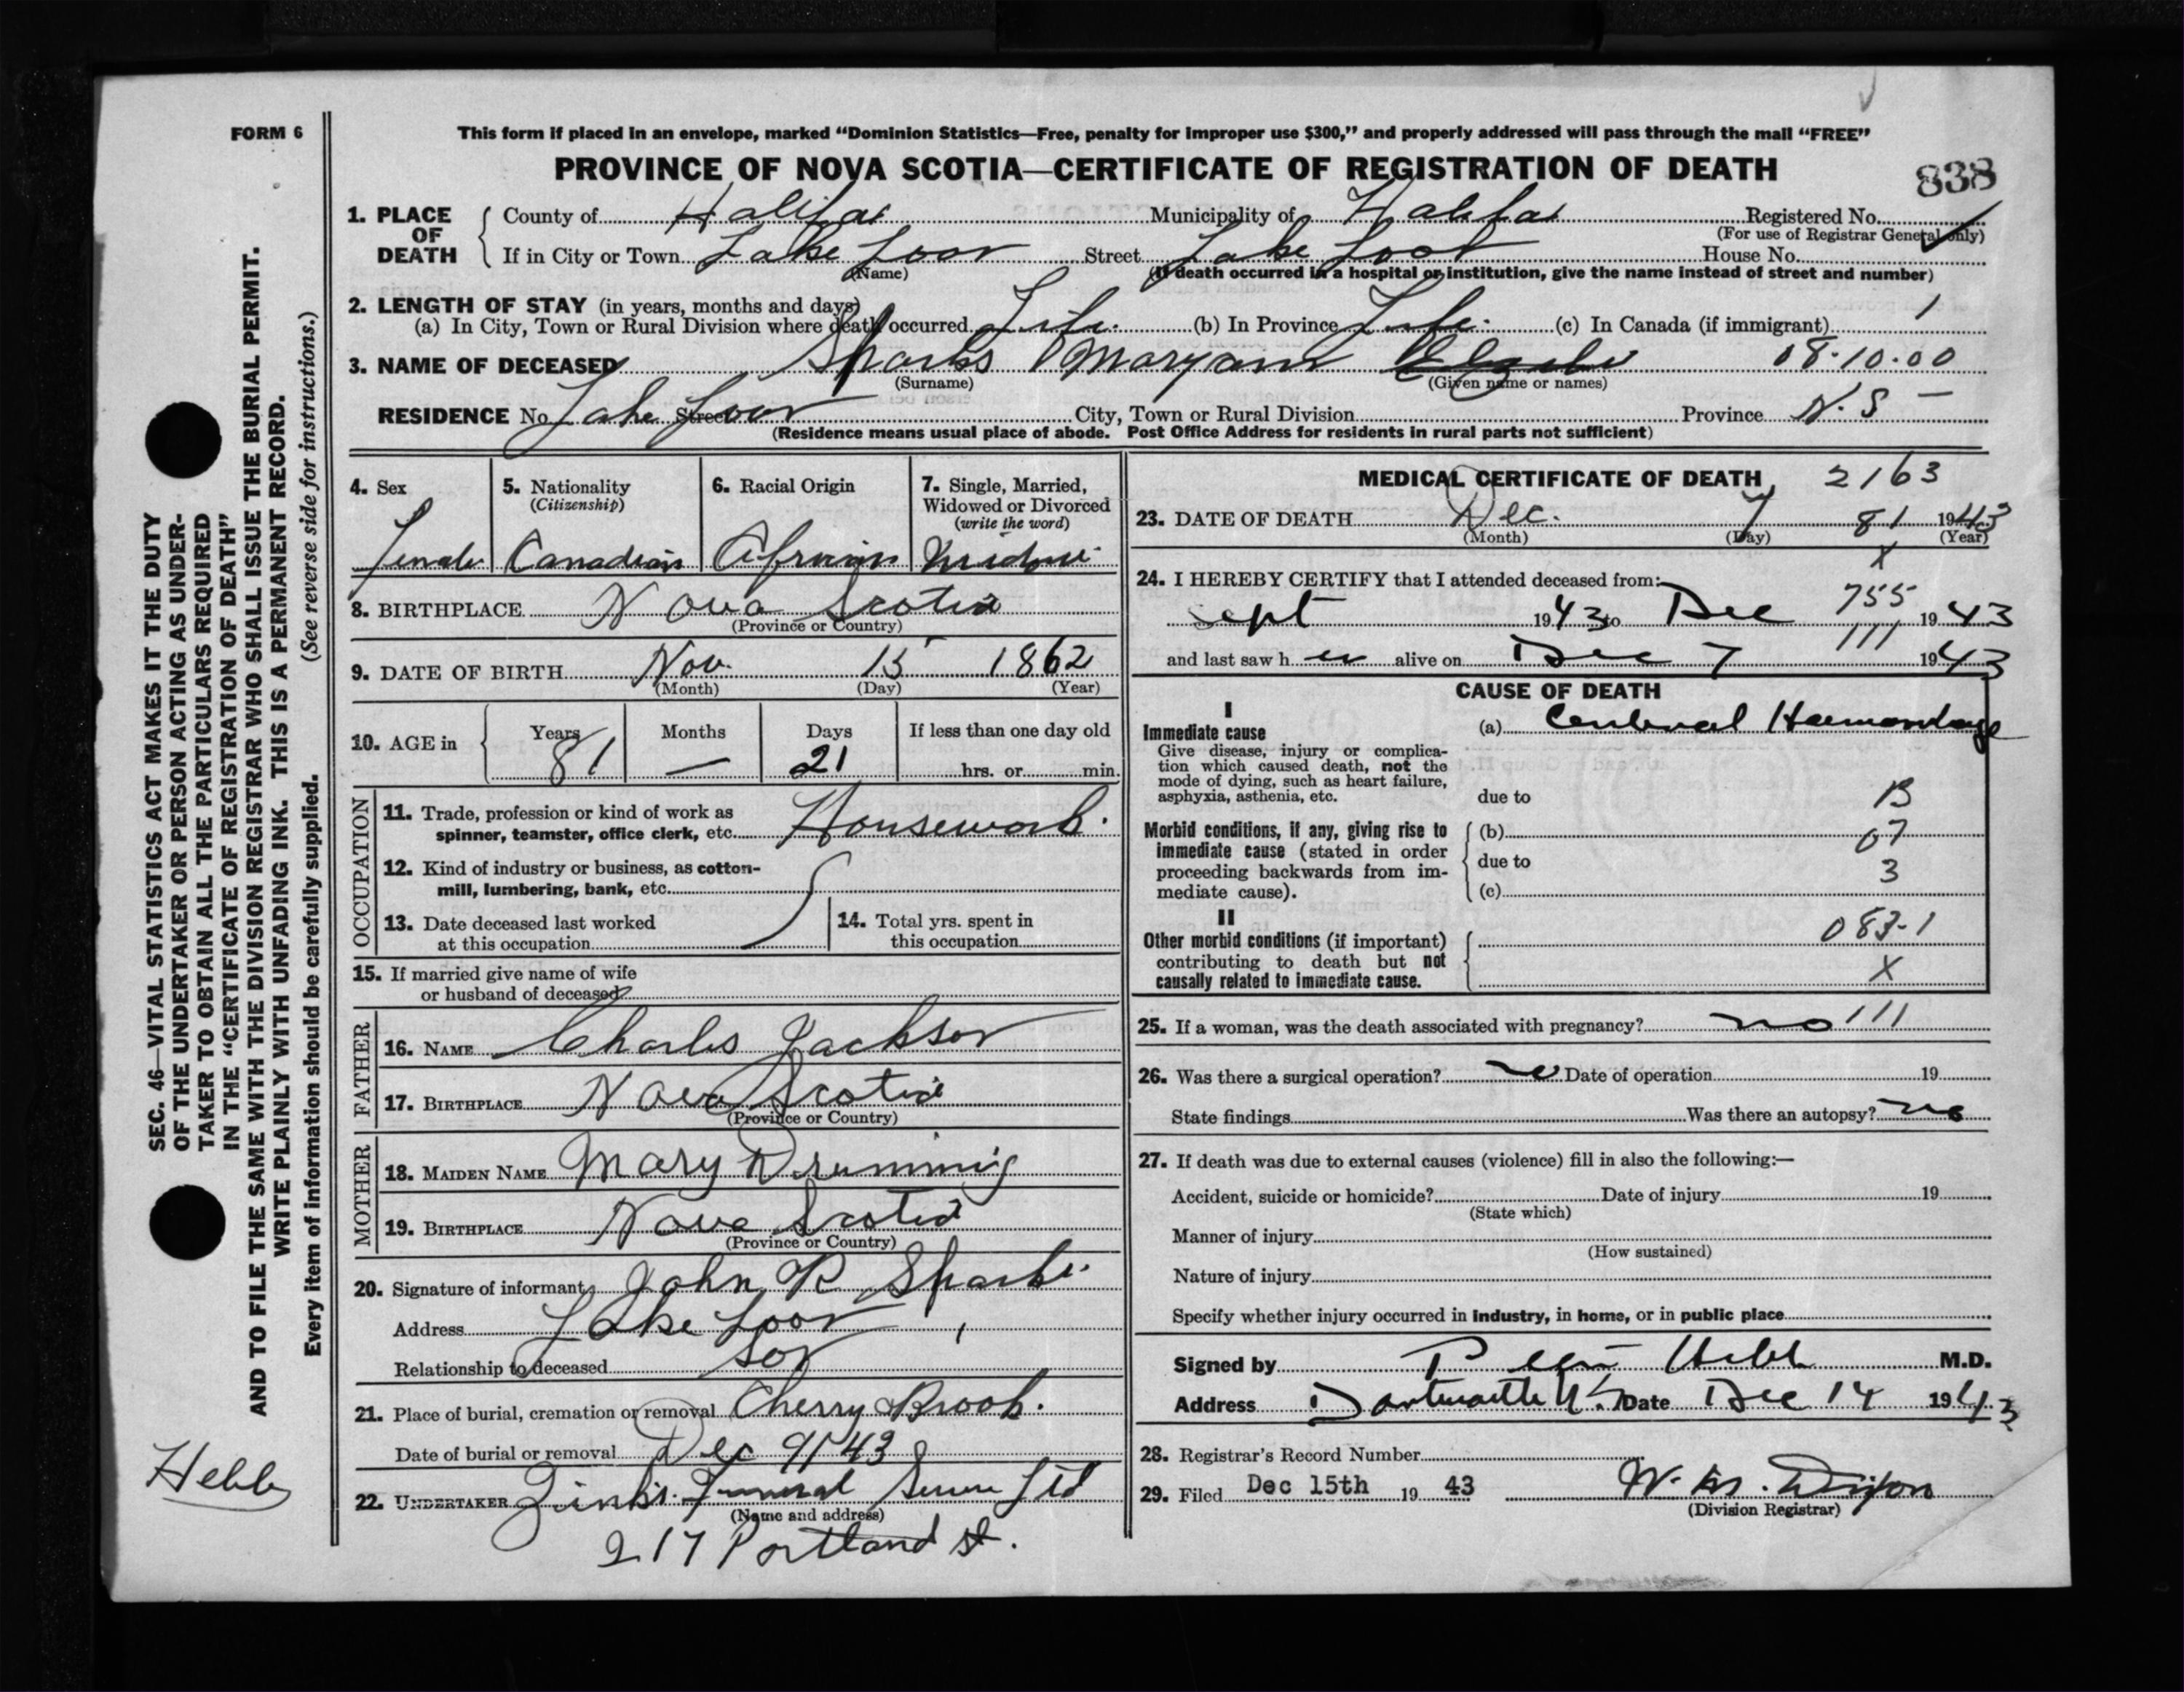 FORM 6
This form if placed in an envelope, marked “Dominion Statistics—Free, penalty for improper use $300,” and properly addressed will pass through the mail “FREE”
PROVINCE OF NOVA SCOTIA—CERTIFICATE OF REGISTRATION OF DEATH
838
1. PLACE OF DEATH
County of Halifax Municipality of Halifax Registered No.
(For use of Registrar General only)
If in City or Town Lake Loon Street Lake Loon House No.
(Name) (If death occurred in a hospital or institution, give the name instead of street and number)
2. LENGTH OF STAY (in years, months and days)
(a) In City, Town or Rural Division where death occurred Life. (b) In Province Life. (c) In Canada (if immigrant) 1
3. NAME OF DECEASED Sparks Maryann 08-10-00
(Surname) (Given name or names)
RESIDENCE No. Lake Street Loon City, Town or Rural Division Province N.S —
(Residence means usual place of abode. Post Office Address for residents in rural parts not sufficient)
4. Sex
Female
5. Nationality
(Citizenship)
Canadian
6. Racial Origin
African
7. Single, Married,
Widowed or Divorced
(write the word)
Widow
8. BIRTHPLACE Nova Scotia
(Province or Country)
9. DATE OF BIRTH Nov. 15 1862
(Month) (Day) (Year)
10. AGE in
Years Months Days If less than one day old
81 — 21 hrs. or min.
OCCUPATION
11. Trade, profession or kind of work as
spinner, teamster, office clerk, etc. Housework.
12. Kind of industry or business, as cotton-
mill, lumbering, bank, etc.
13. Date deceased last worked
at this occupation
14. Total yrs. spent in
this occupation
15. If married give name of wife
or husband of deceased
FATHER
16. NAME Charles Jackson
17. BIRTHPLACE Nova Scotia
(Province or Country)
MOTHER
18. MAIDEN NAME Mary
19. BIRTHPLACE Nova Scotia
(Province or Country)
20. Signature of informant John R Sparks
Address Lake Loon
Relationship to deceased son
21. Place of burial, cremation or removal Cherry Brook.
Date of burial or removal Dec 9/43
22. UNDERTAKER Zink's Funeral Service Ltd
(Name and address)
217 Portland St.
MEDICAL CERTIFICATE OF DEATH 2163
23. DATE OF DEATH Dec. 7 81 1943
(Month) (Day) (Year)
X
24. I HEREBY CERTIFY that I attended deceased from:
755
Sept 1943 to Dec 1943
111
and last saw h er alive on Dec 7 1943
CAUSE OF DEATH
I
Immediate cause
Give disease, injury or complica-
tion which caused death, not the
mode of dying, such as heart failure,
asphyxia, asthenia, etc.
(a) Cerebral Haemorrhage
due to 13
Morbid conditions, if any, giving rise to
immediate cause (stated in order
proceeding backwards from im-
mediate cause).
(b) 07
due to 3
(c)
II
Other morbid conditions (if important)
contributing to death but not
causally related to immediate cause.
083-1
X
25. If a woman, was the death associated with pregnancy? no 111
26. Was there a surgical operation? no Date of operation 19
State findings Was there an autopsy? no
27. If death was due to external causes (violence) fill in also the following:—
Accident, suicide or homicide? Date of injury 19
(State which)
Manner of injury
(How sustained)
Nature of injury
Specify whether injury occurred in industry, in home, or in public place
Signed by Hebb M.D.
Address Dartmouth N.S Date Dec 14 1943
28. Registrar's Record Number
29. Filed Dec 15th 19 43 W. M. Dixon
(Division Registrar)
SEC. 46—VITAL STATISTICS ACT MAKES IT THE DUTY
OF THE UNDERTAKER OR PERSON ACTING AS UNDER-
TAKER TO OBTAIN ALL THE PARTICULARS REQUIRED
IN THE “CERTIFICATE OF REGISTRATION OF DEATH”
AND TO FILE THE SAME WITH THE DIVISION REGISTRAR WHO SHALL ISSUE THE BURIAL PERMIT.
WRITE PLAINLY WITH UNFADING INK. THIS IS A PERMANENT RECORD.
Every item of information should be carefully supplied. (See reverse side for instructions.)
Hebb